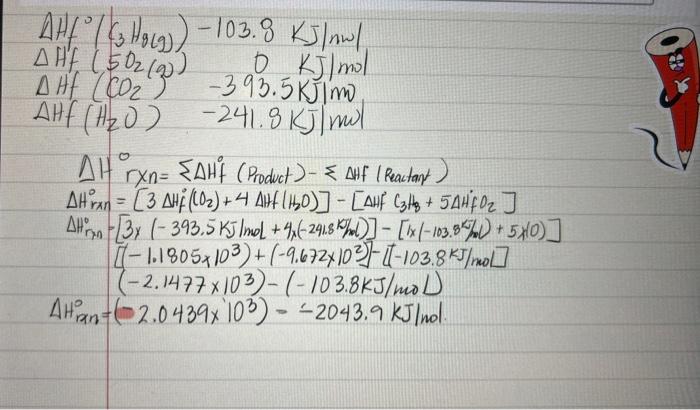 ΔHf° (C3H8(g)) -103.8 KJ/mol
ΔHf (5O2(g)) 0 KJ/mol
ΔHf (CO2) -393.5KJ/mo
ΔHf (H2O) -241.8 KJ/mol
ΔH°rxn= ΣΔHf° (Product) - Σ ΔHf (Reactant)
ΔH°rxn = [3 ΔHf°(CO2)+4 ΔHf(H2O)] - [ΔHf C3H8 + 5ΔHf°O2]
ΔH°rxn=[3x (-393.5KJ/mol + 4x(-241.8 KJ/mol)] - [1x(-103.8KJ/mol) + 5x(0)]
[(-1.1805x10³)+(-9.672x10²]-[(-103.8KJ/mol]
(-2.1477x10³)-(-103.8KJ/mol)
ΔH°rxn=(-2.0439x10³) - -2043.9 KJ/mol.